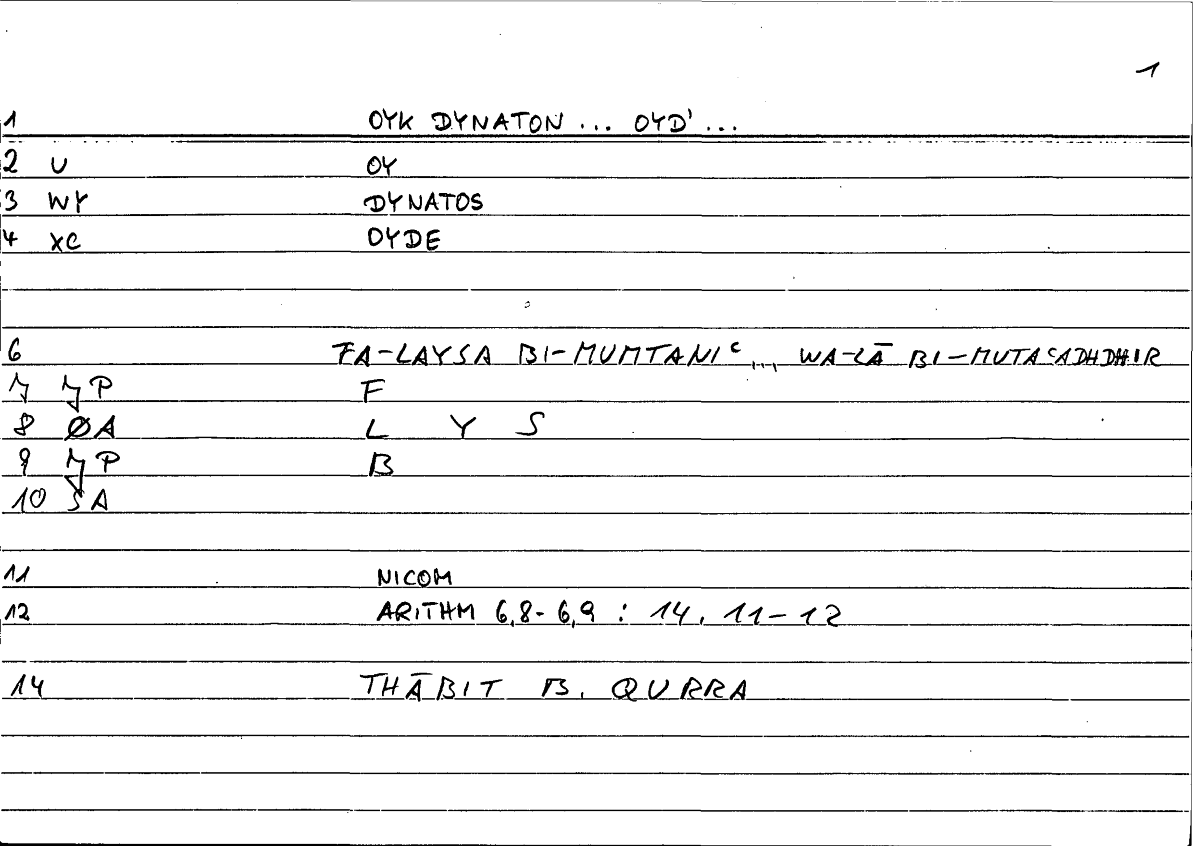 1
1 OYK DYNATON ... OYD' ...
2 U OY
3 WY DYNATOS
4 XC OYDE
6 FA-LAYSA BI-MUMTANIᶜ ... WA-LĀ BI-MUTAᶜADHDHIR
7 P F
8 ØA L Y S
9 P B
10 SA
11 NICOM
12 ARITHM 6,8-6,9 : 14, 11-12
14 THĀBIT B. QURRA